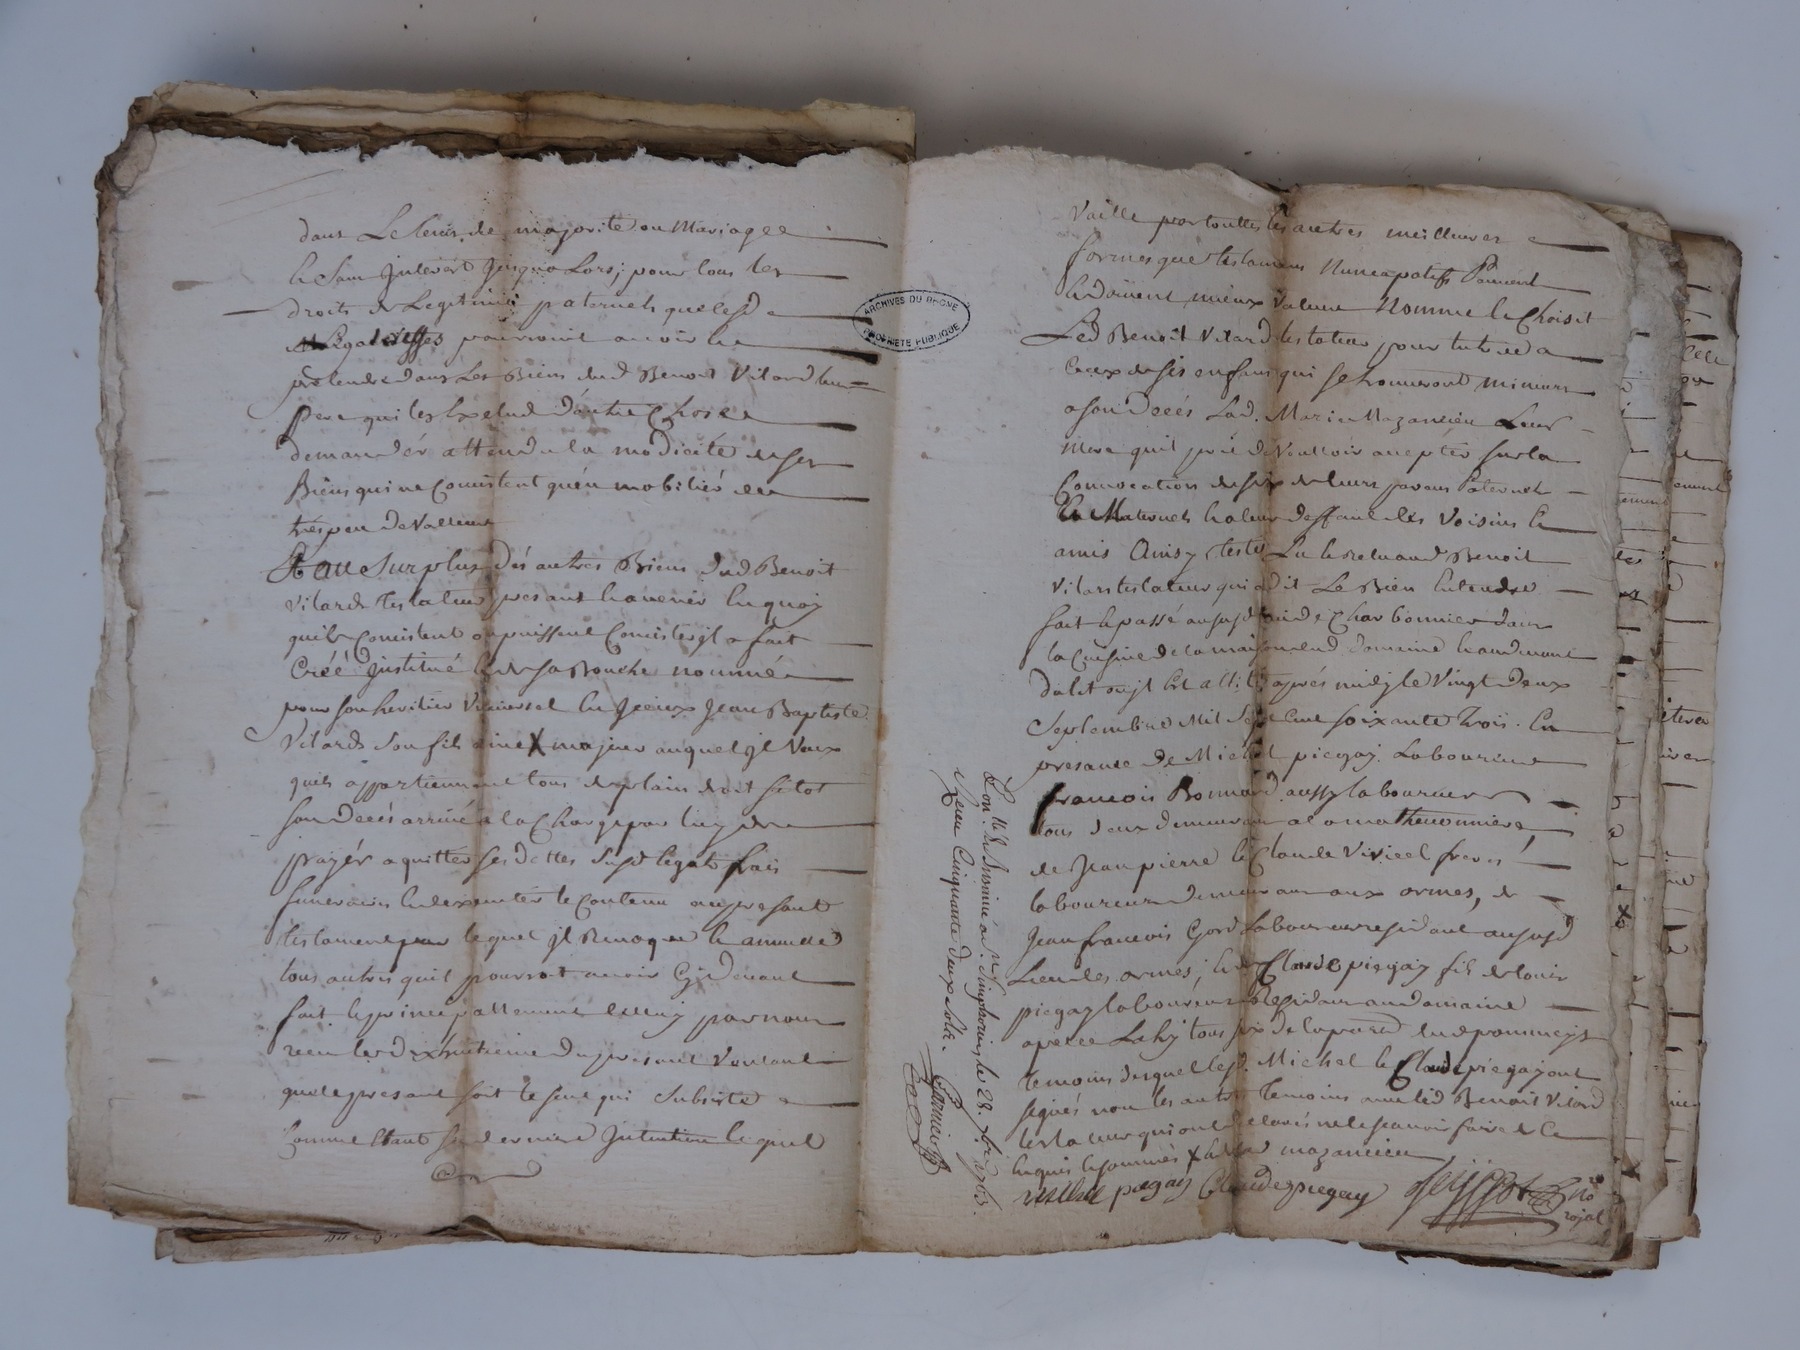 dans Le tems de majorité ou Mariage e
le sans Interest Jusqua Lors; pour tous les
droits de Legitime paternels que lesd e
Legataires pourroint avoir he
pretendre dans Les Biens dud Benoit Vilard leur
pere qui les Exclud d'autre Chose e
demander attendu la modicité de ses
Biens qui ne Consistent qu'en mobilier de
trés peu de Valleur
Et au Surplus dés autres Biens dud Benoit
Vilard testateur presans havenir En quoy
quils Consistent ou puissent Consister jl a fait
Créé Justitué & de sa Bouche nommé
pour son heritier Universel En jceux Jean Baptiste
Vilard Son fils ainé X majeur auquel jl Veux
quils appartiennent tous de plain droit sitot
son Decés arrivé a la Charge par luy de
prayér aquitter ses dettes Susd legats frais
funerains & dexecuter le Contenu au present
testament par lequel jl Revoque & annulle
tous autres quil pourroit avoir Cy Devant
fait & principallement celuy par nous
receu le dixhuitieme du present Voulant
que le present soit le seul qui Subsiste
Comme Etant sa derniere Intention lequel
ARCHIVES DU RHONE
PROPRIETE PUBLIQUE
Vaille par touttes les autres meilleures
formes que testamens Nuncupatifs Peuvent
& doivent mieux Valoir Nomme & Choisit
Led Benoit Vilard testateur pour tutrice a
Ceux de ses enfans qui se trouveront mineurs
a son Decés Lad. Marie Mazancieu Leur
Mere quil prie de Voulloir accepter sur la
Convocation de six de leurs parans Paternels
& Maternels ha leur deffaut des Voisins &
amis Ainsy testé Lu & releu aud Benoit
Vilard testateur qui a dit Le Bien Entendre
fait & passé au susd de Charbonnier dans
la Cuisine de la maison dud Domaine & au devant
du lit ou jl Est allité aprés midy le Vingt Deux
Septembre Mil Sept Cent soixante Trois. En
presance de Michel piegay Laboureur
francois Bonnard aussy laboureur
tous deux demeurans a la mathevonniere,
de Jean pierre & Claude Viricel freres
laboureurs demeurans aux ormes, de
Jean francois Gord Laboureur residant au susd
Lieu des ormes; & de Claude piegay fils de louis
piegay laboureur Residans au domaine
apellé Lahy tous six de la parr. dud pommeys
temoins desquels lesd. Michel & Claude piegay ont
signés non les autres temoins ny led Benoit Vilard
testateur qui ont declarés ne le scavoir faire de Ce
Enquis & sommés X mazancieu
michel piegay Claude piegay
no.re
rojal
Con.lle & Insinué a St. Simphorien le 28. 7bre 1763.
Receu Cinquante deux Sols.